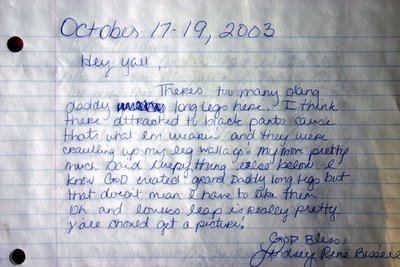 October 17-19, 2003
Hey yall,
Theres too many dang
daddy long legs here. I think
there attracted to black pants cause
thats what Im wearin and they were
crawling up my leg wallago. My mom pretty
much said everything else below. I
know GOD created grand Daddy long legs but
that doesn't mean I have to like them.
Oh and lovers leap is really pretty
y'are should get a picture.
GOD Bless,
Lindsey René